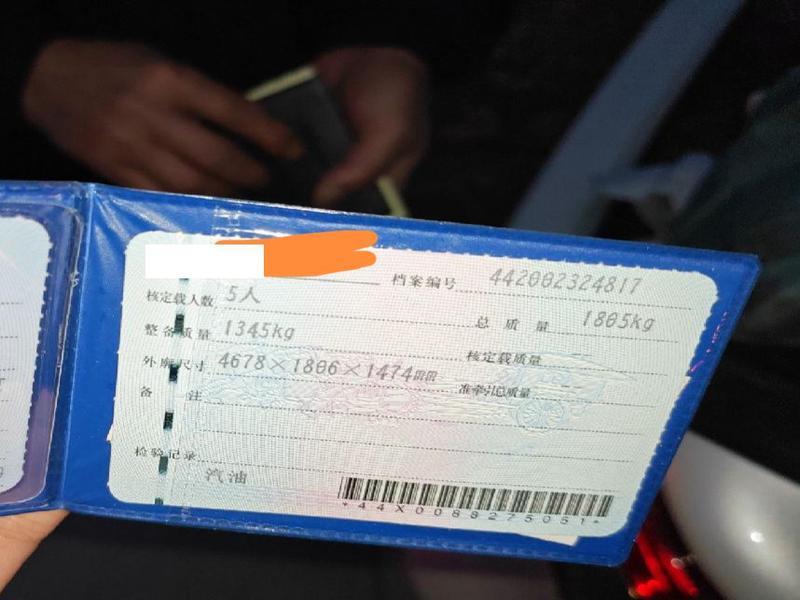 档案编号 442002324817
核定载人数 5人
总质量 1805kg
整备质量 1345kg
核定载质量
外廓尺寸 4678×1806×1474mm
准牵引总质量
备注
检验记录
汽油
*44X0088275051*